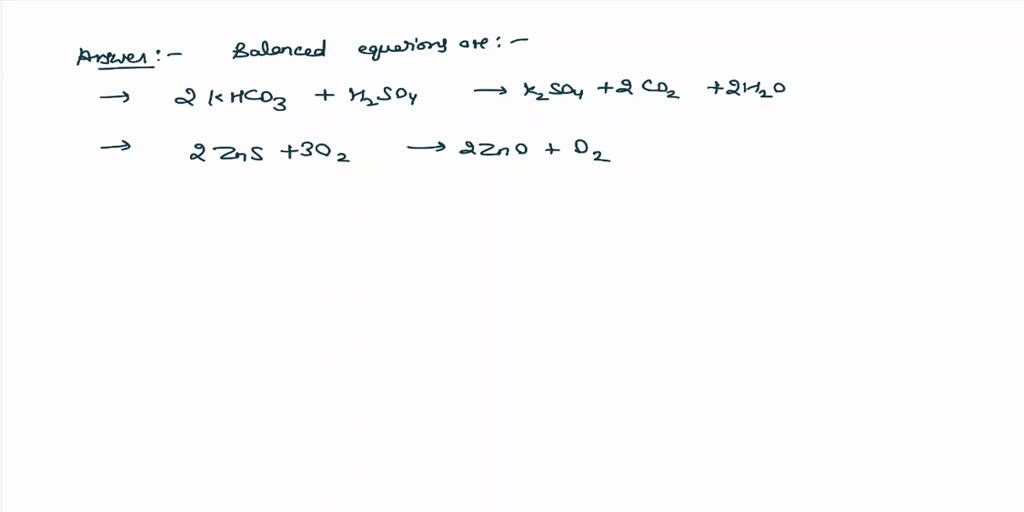 Answer:- Balanced equations are:-
→ 2 KHCO3 + H2SO4 → K2SO4 + 2 CO2 + 2H2O
→ 2 ZnS + 3O2 → 2ZnO + O2